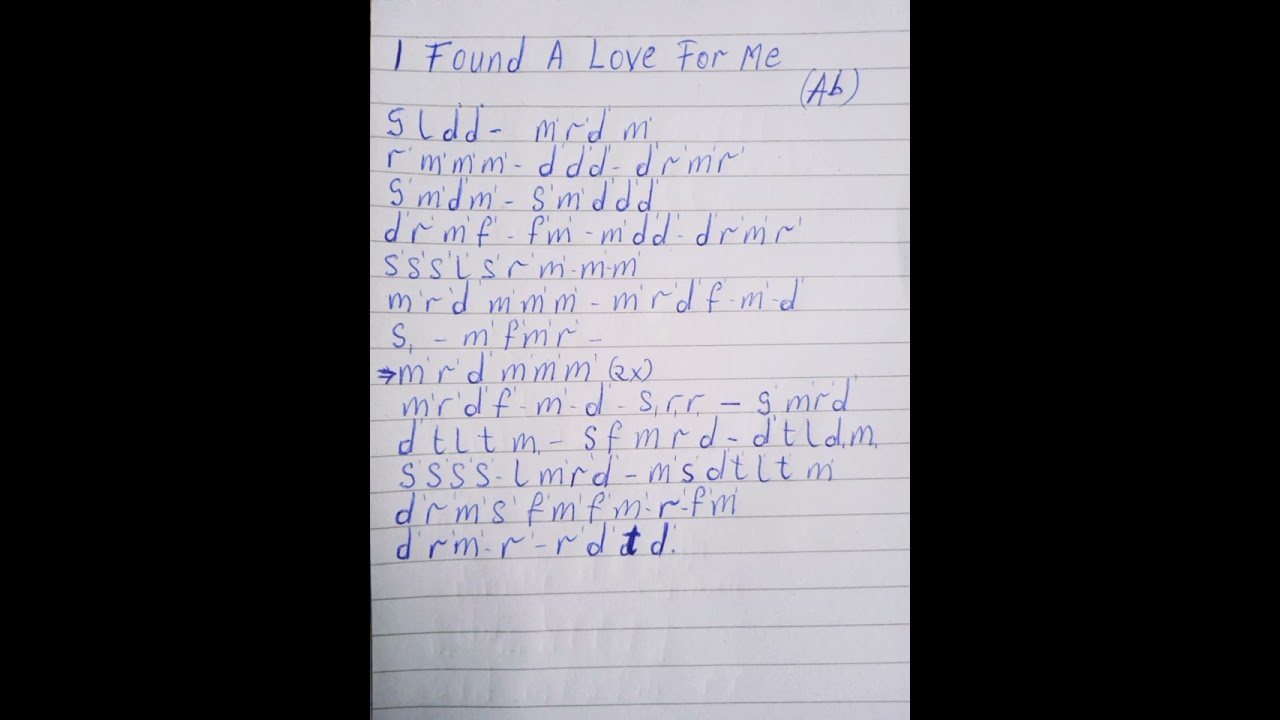 I Found A Love For Me
(Ab)
s l d' d' - m' r' d' m'
r' m' m' m' - d' d' d' - d' r' m' r'
s' m' d' m' - s' m' d' d' d'
d' r' m' f' - f' m' - m' d' d' - d' r' m' r'
s' s' s' l' s' r' m' - m' - m'
m' r' d' m' m' m' - m' r' d' f' - m' - d'
s, - m' f' m' r' -
→ m' r' d' m' m' m' (2x)
m' r' d' f' - m' - d' - s, r, r, - s' m' r' d'
d' t l t m, - s' f' m' r' d' - d' t l d, m,
s' s' s' s' - l' m' r' d' - m' s' d' t l t m'
d' r' m' s' f' m' f' m' - r' - f' m'
d' r' m' - r' - r' d' t d'.